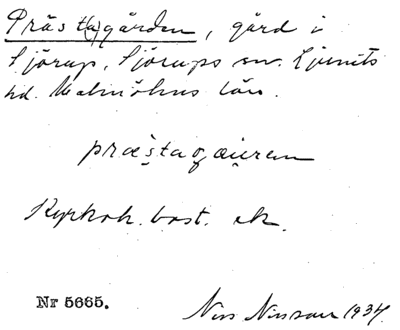 Präst(a)gården, gård i
Sjörup, Sjörups sn. Ljunits
hd. Malmöhus län.
præstagæuren
Kyrkoh. bost. ek.
Nr 5665.
Nils Nilsson 1934.